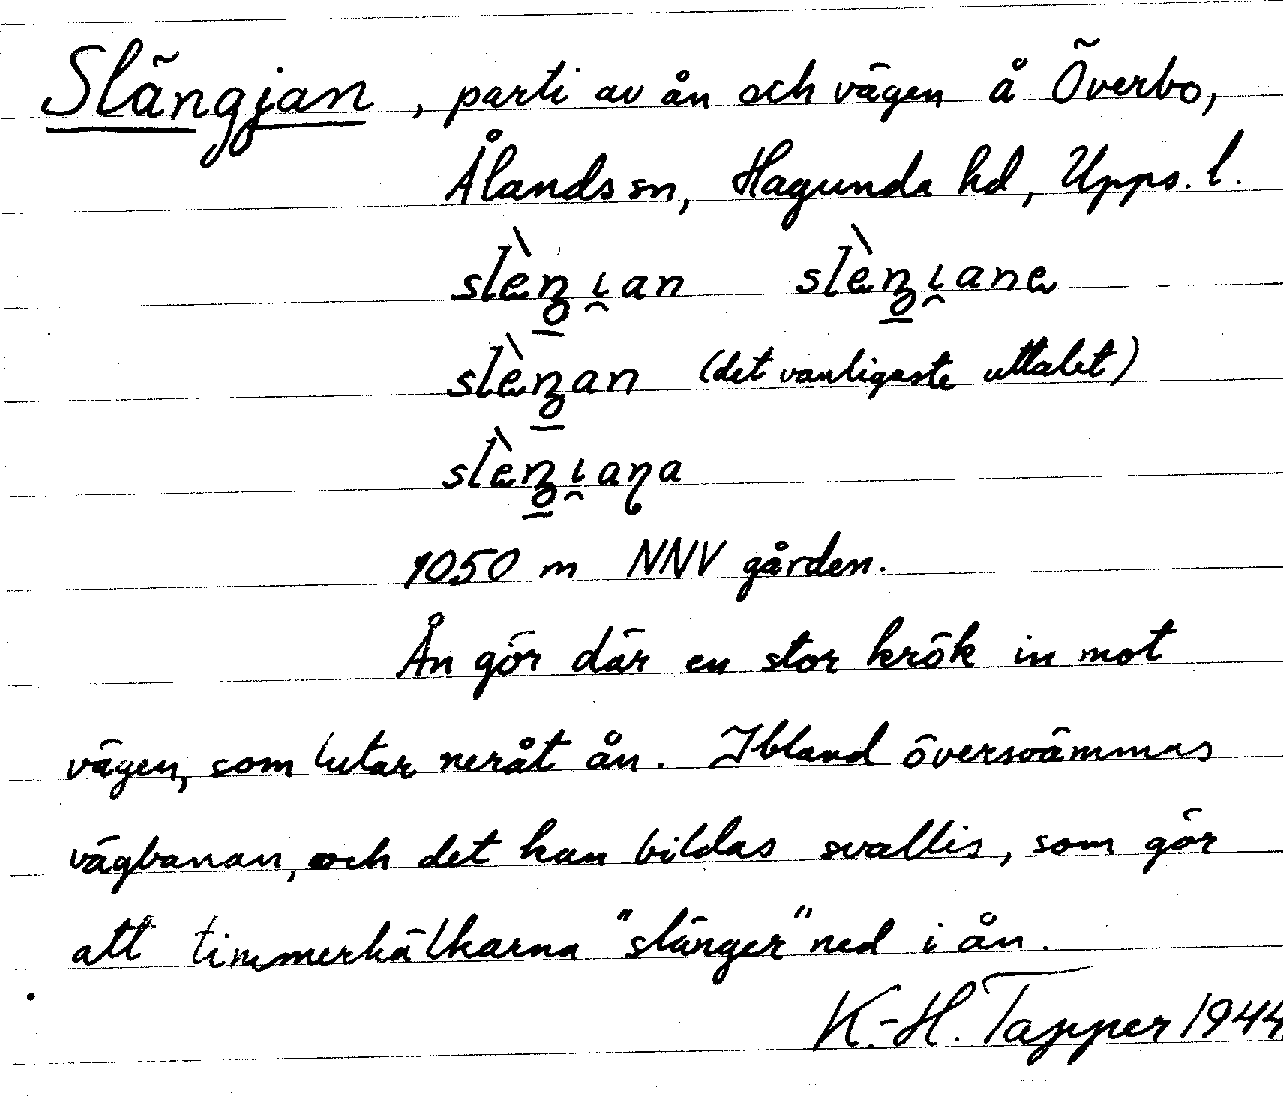 Slängjan, parti av ån och vägen å Överbo,
Ålands sn, Hagunda hd, Upps. l.
slèŋi̯an slèŋi̯ane
slèŋan (det vanligaste uttalet)
slèŋi̯aṇa
1050 m NNV gården.
Ån gör där en stor krök in mot
vägen, som lutar neråt ån. Ibland översvämmas
vägbanan, och det kan bildas svallis, som gör
att timmerkälkarna "slänger" ned i ån.
K.-H. Tapper 1944